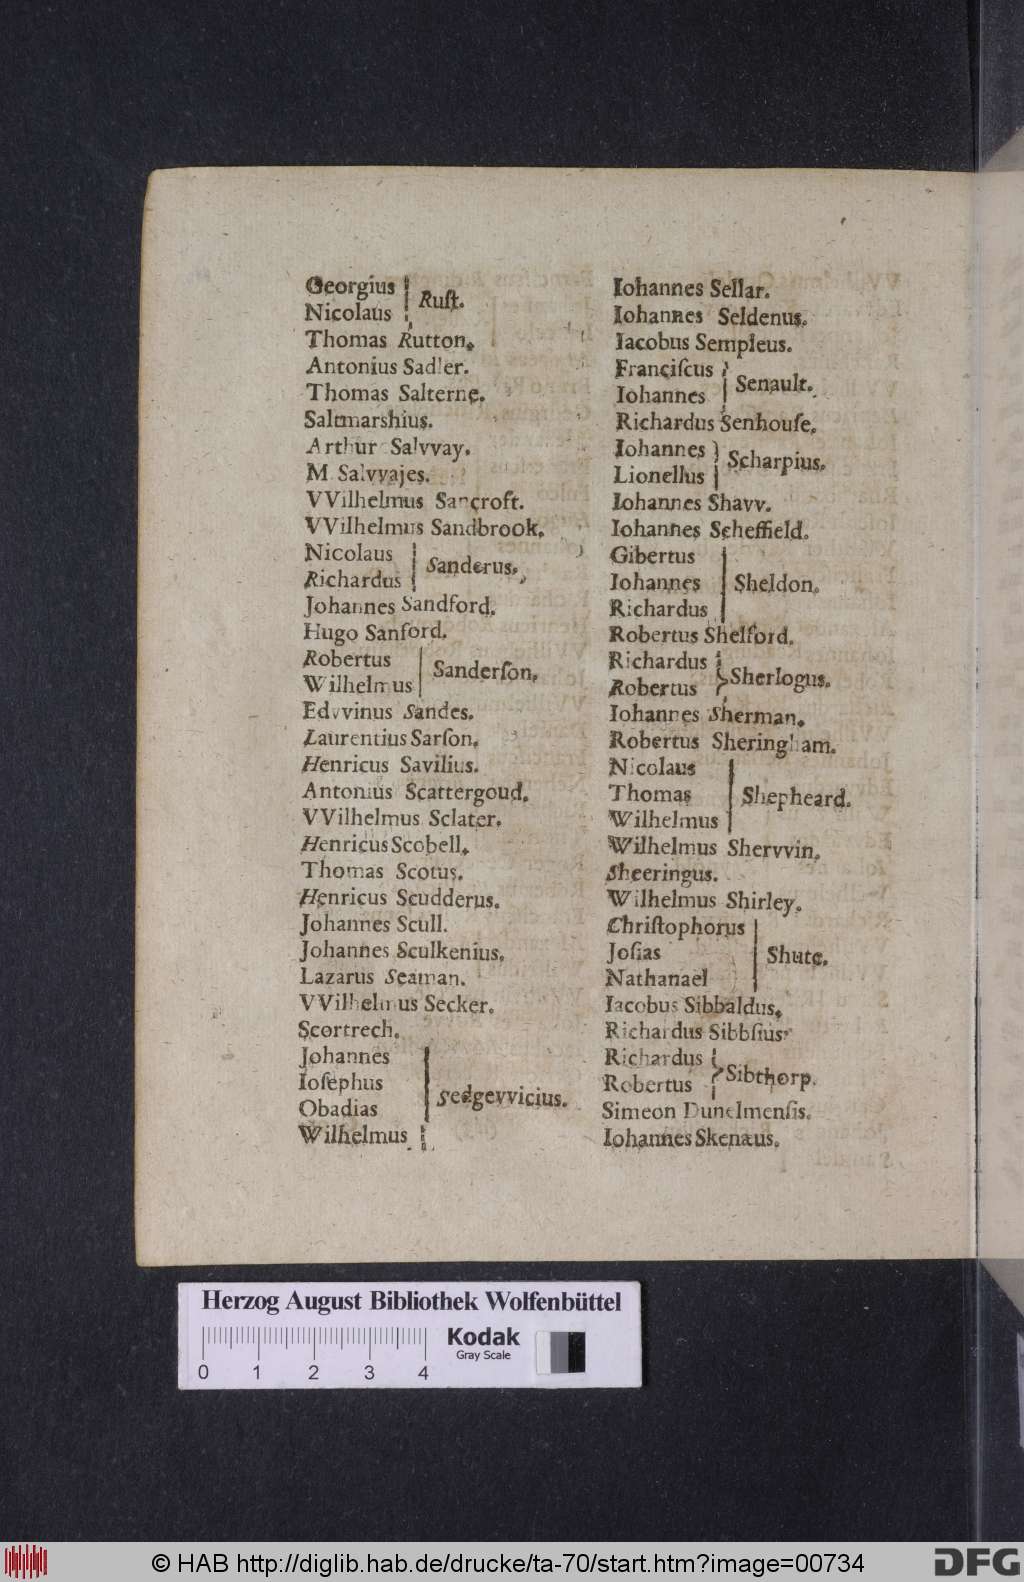 Georgius
Nicolaus
Ruſt.
Thomas Rutton.
Antonius Sadler.
Thomas Salterne.
Saltmarshius.
Arthur Salvvay.
M Salvvajes.
VVilhelmus Sancroft.
VVilhelmus Sandbrook.
Nicolaus
Richardus
Sanderus.
Johannes Sandford.
Hugo Sanford.
Robertus
Wilhelmus
Sanderſon.
Edvvinus Sandes.
Laurentius Sarſon.
Henricus Savilius.
Antonius Scattergoud.
VVilhelmus Sclater.
Henricus Scobell.
Thomas Scotus.
Henricus Scudderus.
Johannes Scull.
Johannes Sculkenius.
Lazarus Seaman.
VVilhelmus Secker.
Scortrech.
Johannes
Ioſephus
Obadias
Wilhelmus
Sedgevvicius.
Iohannes Sellar.
Iohannes Seldenus.
Iacobus Sempleus.
Franciſcus
Iohannes
Senault.
Richardus Senhouſe.
Iohannes
Lionellus
Scharpius.
Iohannes Shavv.
Iohannes Scheffield.
Gibertus
Iohannes
Richardus
Sheldon.
Robertus Shelford.
Richardus
Robertus
Sherlogus.
Iohannes Sherman.
Robertus Sheringham.
Nicolaus
Thomas
Wilhelmus
Shepheard.
Wilhelmus Shervvin.
Sheeringus.
Wilhelmus Shirley.
Chriſtophorus
Joſias
Nathanael
Shute.
Iacobus Sibbaldus.
Richardus Sibbſius
Richardus
Robertus
Sibthorp.
Simeon Dunelmenſis.
Iohannes Skenæus.
Herzog August Bibliothek Wolfenbüttel
Kodak
Gray Scale
0 1 2 3 4
© HAB http://diglib.hab.de/drucke/ta-70/start.htm?image=00734
DFG